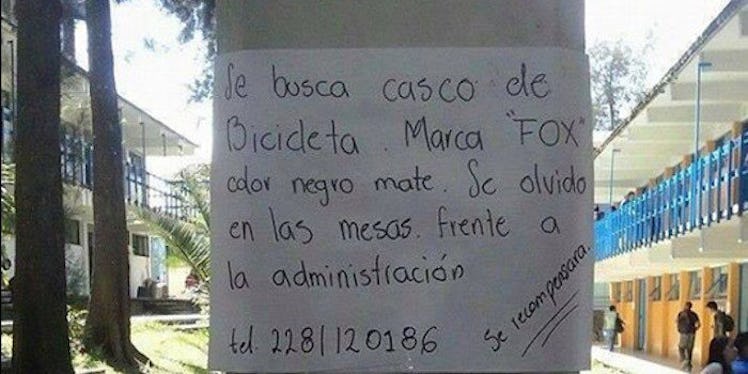 Se busca casco de
Bicicleta. Marca "FOX"
color negro mate. Se olvido
en las mesas. frente a
la administración
tel. 2281120186
Se recompensara.